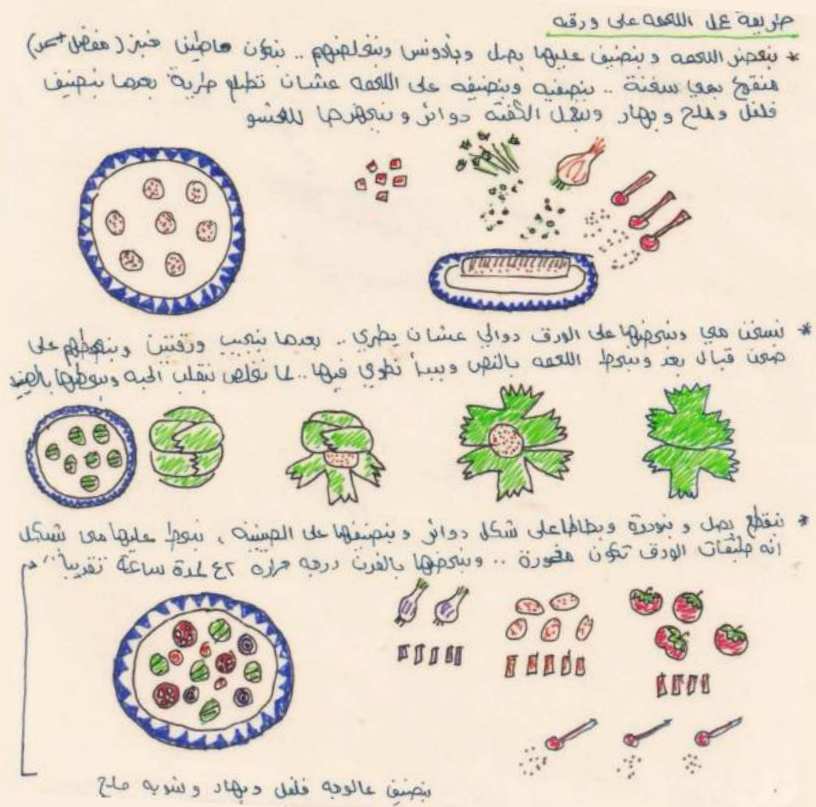 طريقة عمل اللحمه على ورقه
* بنحضر اللحمه وبنضيف عليها بصل وبقدونس وبنخلطهم .. بنكون حاطين خبز (مفضل أسمر)
منقوع بمي سخنة .. بنصفيه وبنضيفه على اللحمه عشان تطلع طرية بعدها بنضيف
فلفل وملح وبهار وبنعمل الكفته دوائر وبنجهزها للحشو
* نسخن مي وبنحطها على الورق دوالي عشان يطري .. بعدها بنجيب ورقتين وبنحطهم على
صحن قبال بعد وبنحط اللحمه بالنص وبنبدأ نطوي فيها .. لما نخلص بنقلب الحبه وبنحطها بالصينية
* بنقطع بصل و بندورة وبطاطا على شكل دوائر وبنصففها على الصينيه ، بنحط عليها مي بشكل
انه طبقات الورق تكون مغمورة .. وبنحطها بالفرن درجه حراره ٢٤٠ لمدة ساعة تقريبا
بنضيف عالوجه فلفل وبهار وشوية ملح